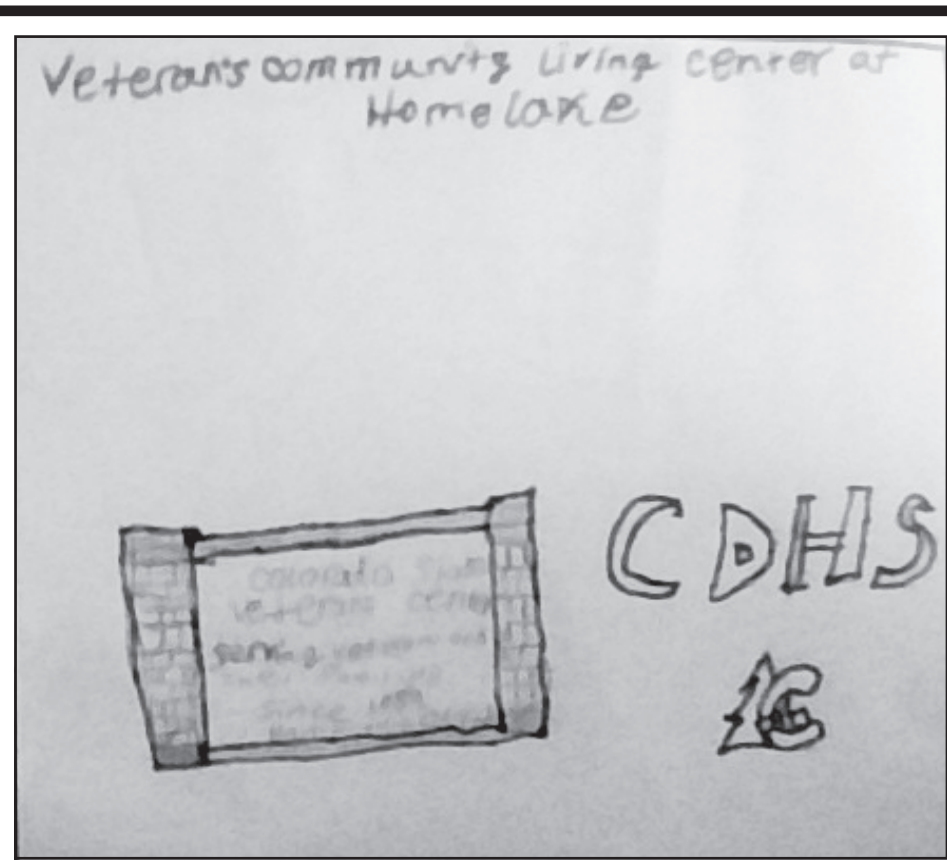 Veteran's community Living center at
Homelake
Colorado State
veterans center
serving veterans and
since
CDHS